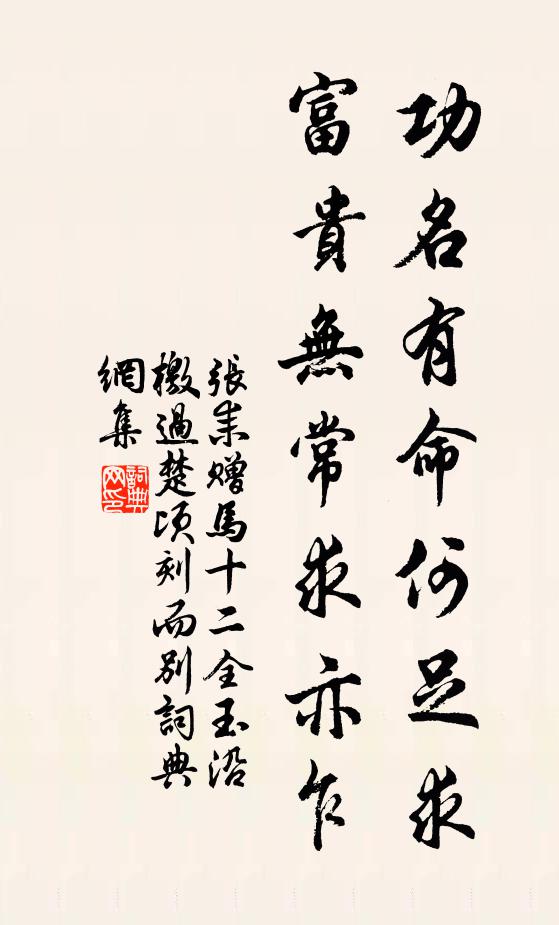 功名有命何足求
富貴無常求亦乍
張耒贈馬十二全玉沿
檄過楚頃刻而別詞典
網集
詞典
网印